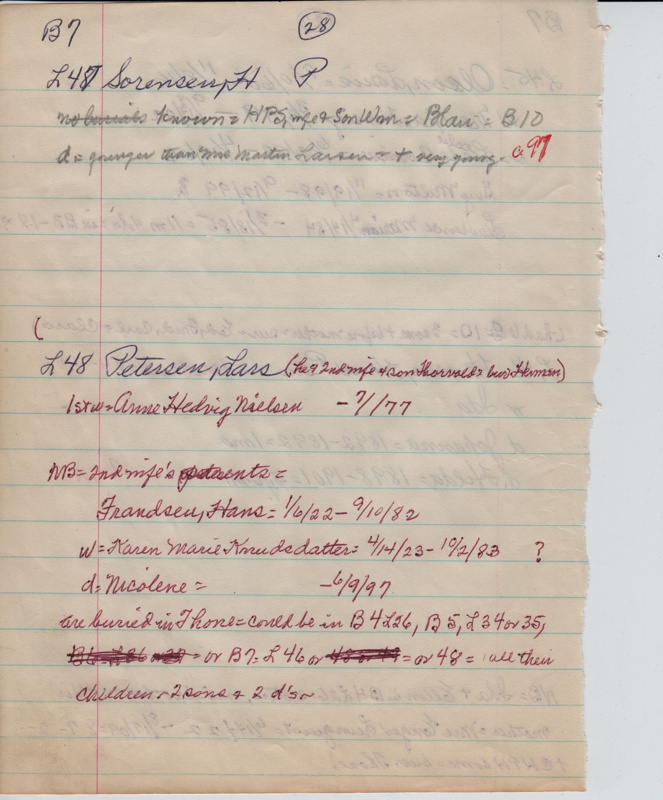 B7 28
L47 Sorensen, H P
no burials known = HPS, wife & son Wm = Blair = B10
d = younger than Mrs Martin Larsen - + very young. a 97
(
L48 Petersen, Lars (he & 2nd wife & son Thorvold = bur Herman)
1st w = Anne Hedvig Nielsen - 7/ /77
NB = 2nd wife's parents =
Frandsen, Hans = 1/6/22 - 9/10/82
w = Karen Marie Knudsdatter = 4/14/23 - 10/2/83 ?
d = Nicolene = - 6/9/97
are buried in Thone = could be in B4L26, B5, L34 or 35,
= or B7 = L46 or = or 48 = all their
children - 2 sons & 2 d's -